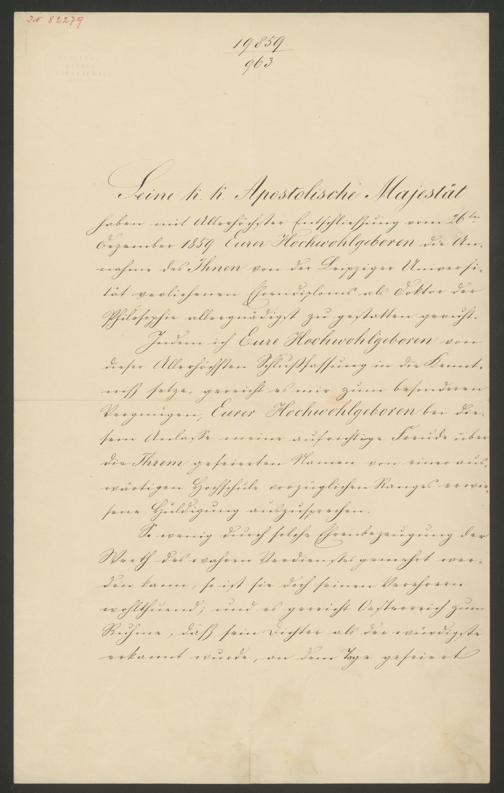 IN 82279
19859
963
Seine k. k. Apostolische Majestät
haben mit Allerhöchster Entschließung vom 26ten
Dezember 1859 Eurer Hochwohlgeboren die An-
nahme des Ihnen von der Leipziger Universi-
tät verliehenen Ehrendiploms als Doktor der
Philosophie allergnädigst zu gestatten geruht.
Indem ich Eure Hochwohlgeboren von
dieser Allerhöchsten Schlußfassung in die Kennt-
niß setze, gereicht es mir zum besonderen
Vergnügen, Eurer Hochwohlgeboren bei die-
sem Anlasse meine aufrichtige Freude über
die Ihrem gefeierten Namen von einer aus-
wärtigen Hochschule vorzüglichen Ranges erwie-
sene Huldigung auszusprechen.
So wenig durch solche Ehrenbezeugung der
Werth des wahren Verdienstes gemehrt wer-
den kann, so ist sie doch seinen Verehrern
wohlthuend, und es gereicht Oesterreich zum
Ruhme, daß sein Dichter als der würdigste
erkannt wurde, an dem Tage gefeiert